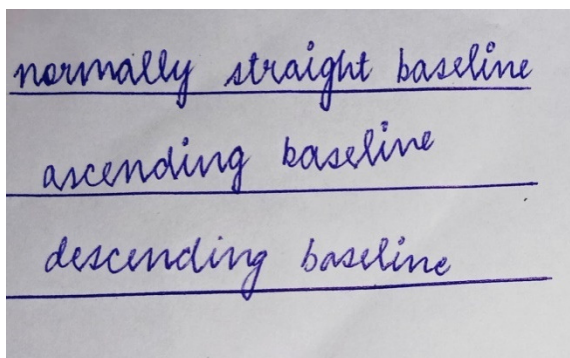 normally straight baseline
ascending baseline
descending baseline